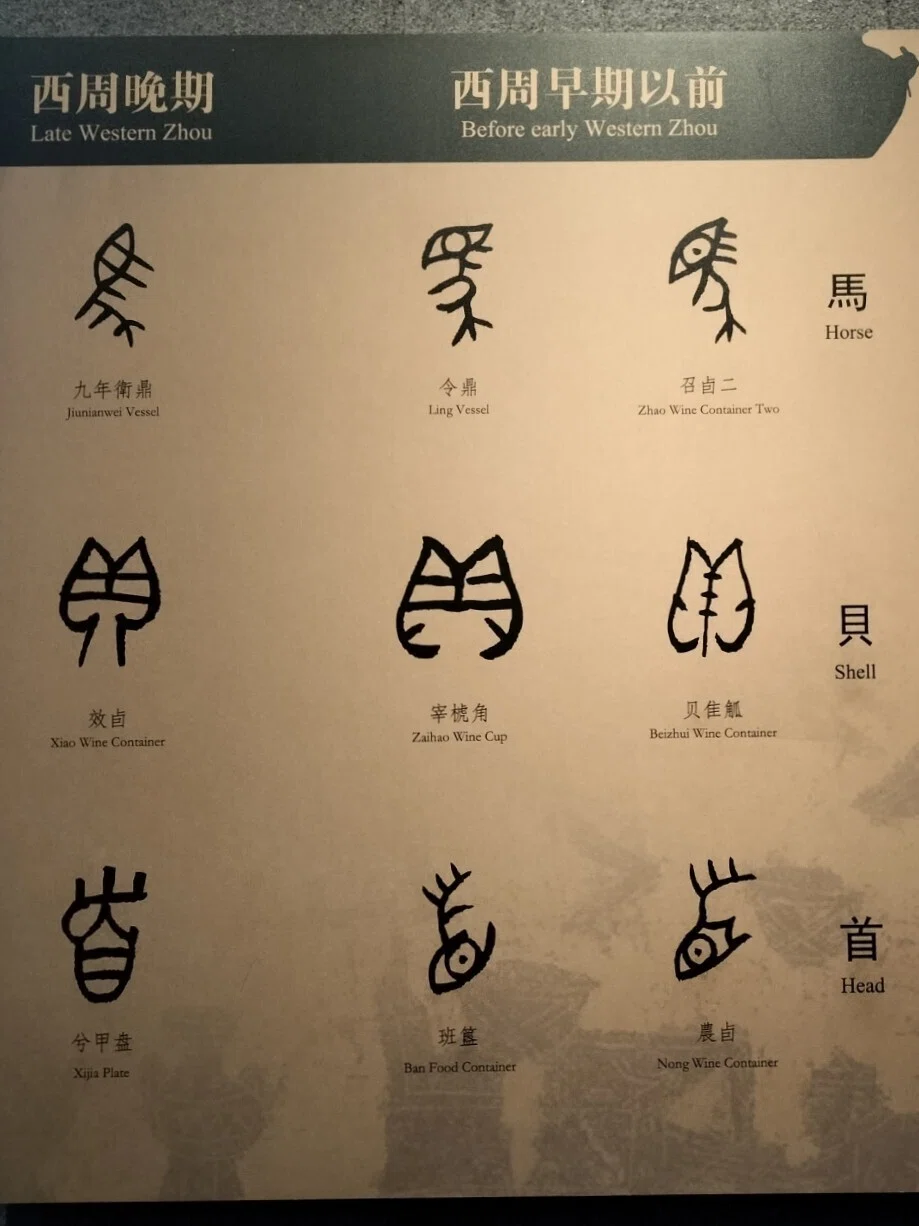 西周晚期
Late Western Zhou
西周早期以前
Before early Western Zhou
馬
Horse
九年衛鼎
Jiunianwei Vessel
令鼎
Ling Vessel
召卣二
Zhao Wine Container Two
貝
Shell
效卣
Xiao Wine Container
宰椃角
Zaihao Wine Cup
贝隹觚
Beizhui Wine Container
首
Head
兮甲盘
Xijia Plate
班簋
Ban Food Container
農卣
Nong Wine Container